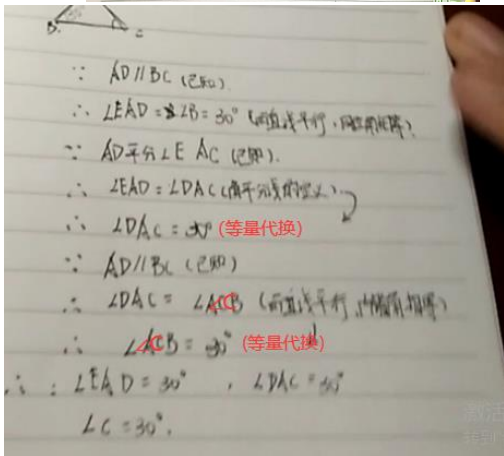 B
C
∵ AD∥BC (已知)
∴ ∠EAD = ∠B = 30° (两直线平行,同位角相等)
∵ AD平分∠EAC (已知).
∴ ∠EAD = ∠DAC (角平分线的定义)
∴ ∠DAC = 30° (等量代换)
∵ AD∥BC (已知)
∴ ∠DAC = ∠ACB (两直线平行,内错角相等)
∴ ∠ACB = 30° (等量代换)
∴ : ∠EAD = 30° , ∠DAC = 30°
∠C = 30°.
激活
转到